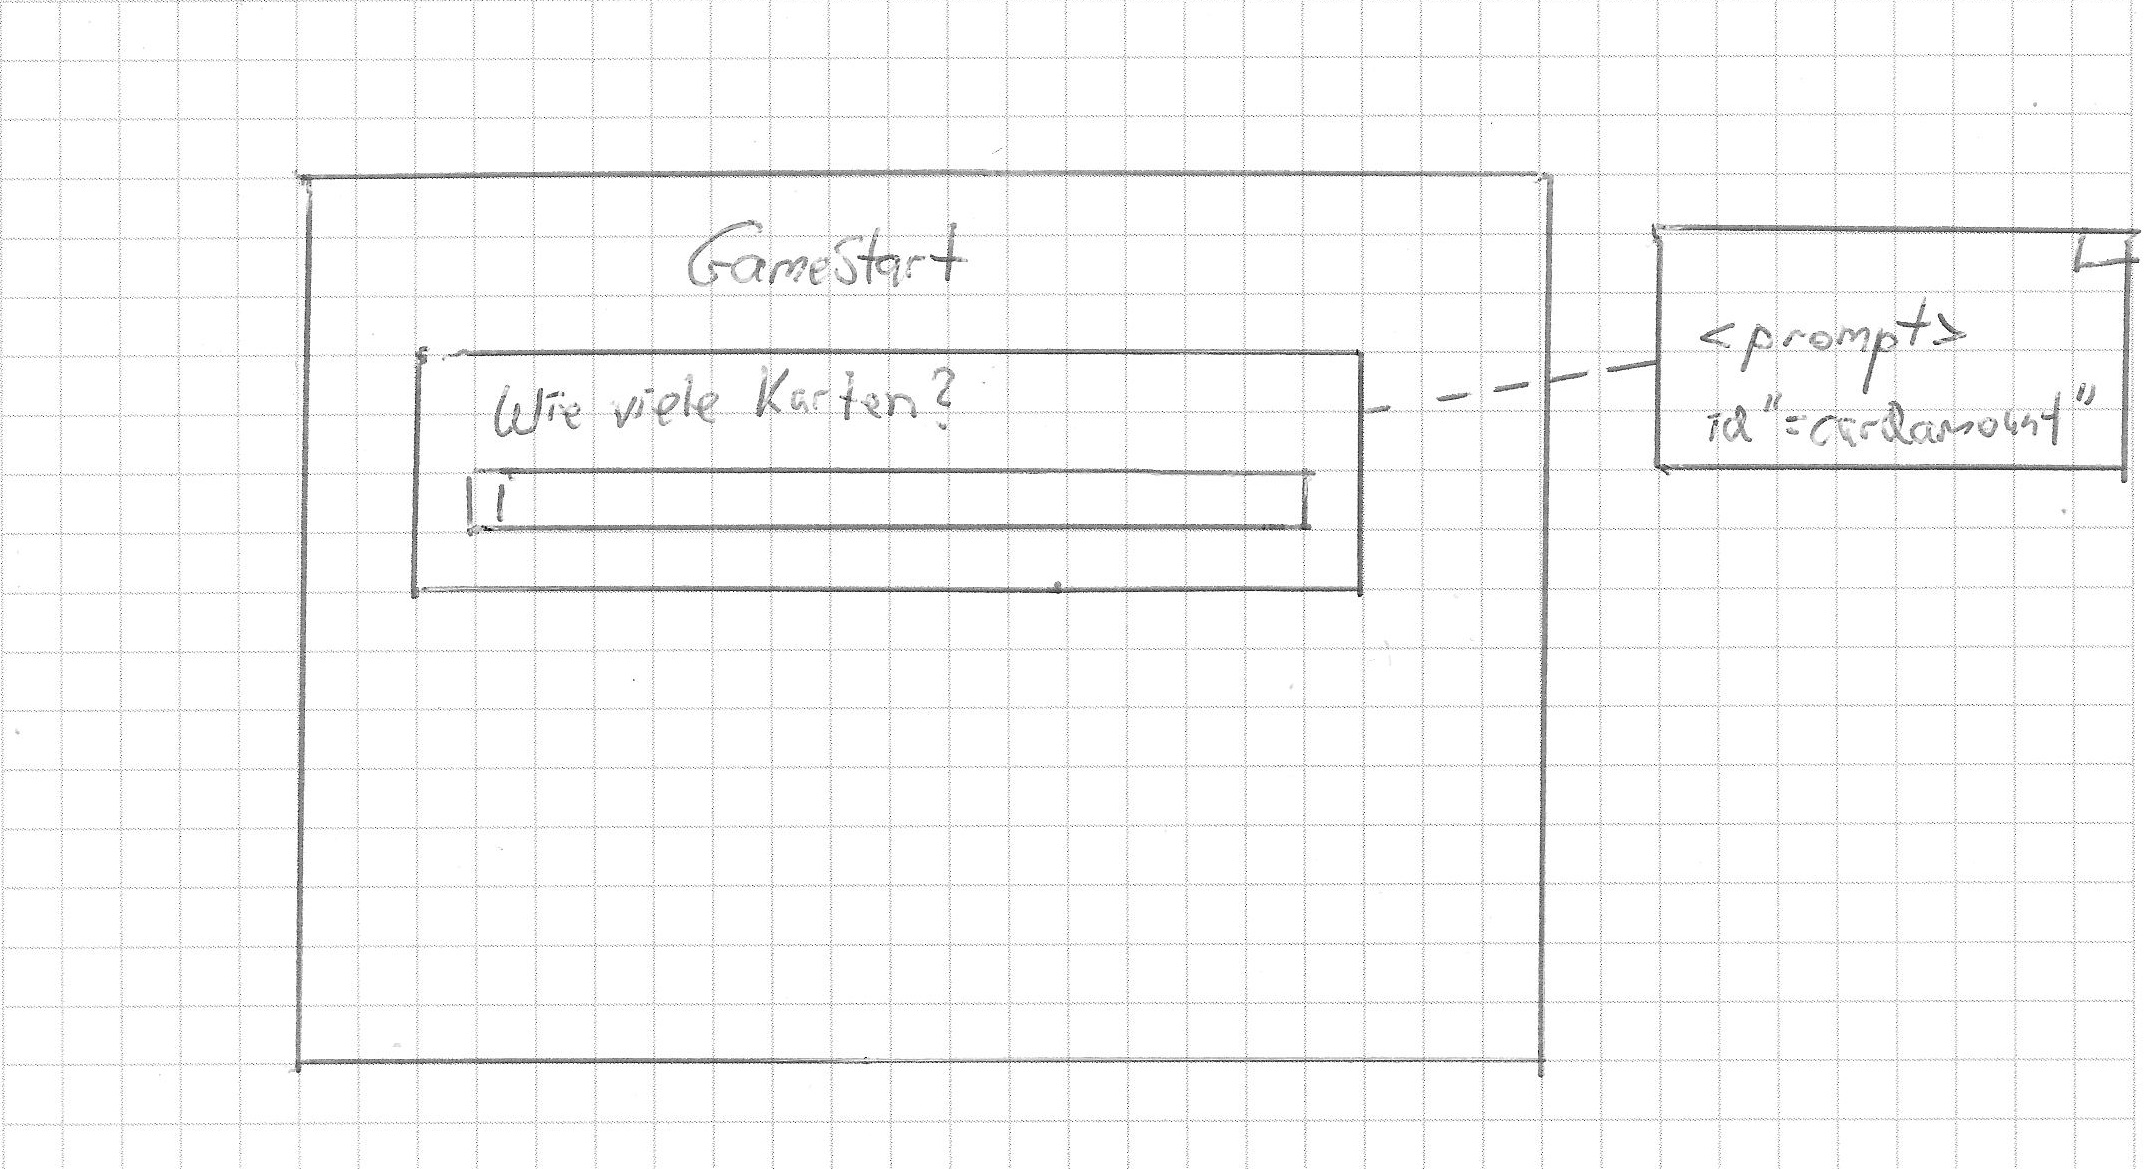 GameStart
Wie viele Karten?
<prompt>
id"=cardamount"